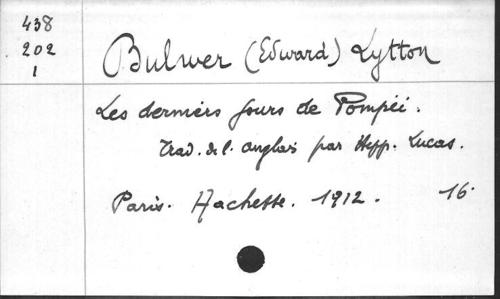 438
202
1
Bulwer (Edward) Lytton
Les derniers jours de Pompéi.
Trad. de l. anglais par Hipp. Lucas.
Paris. Hachette. 1912. 16.